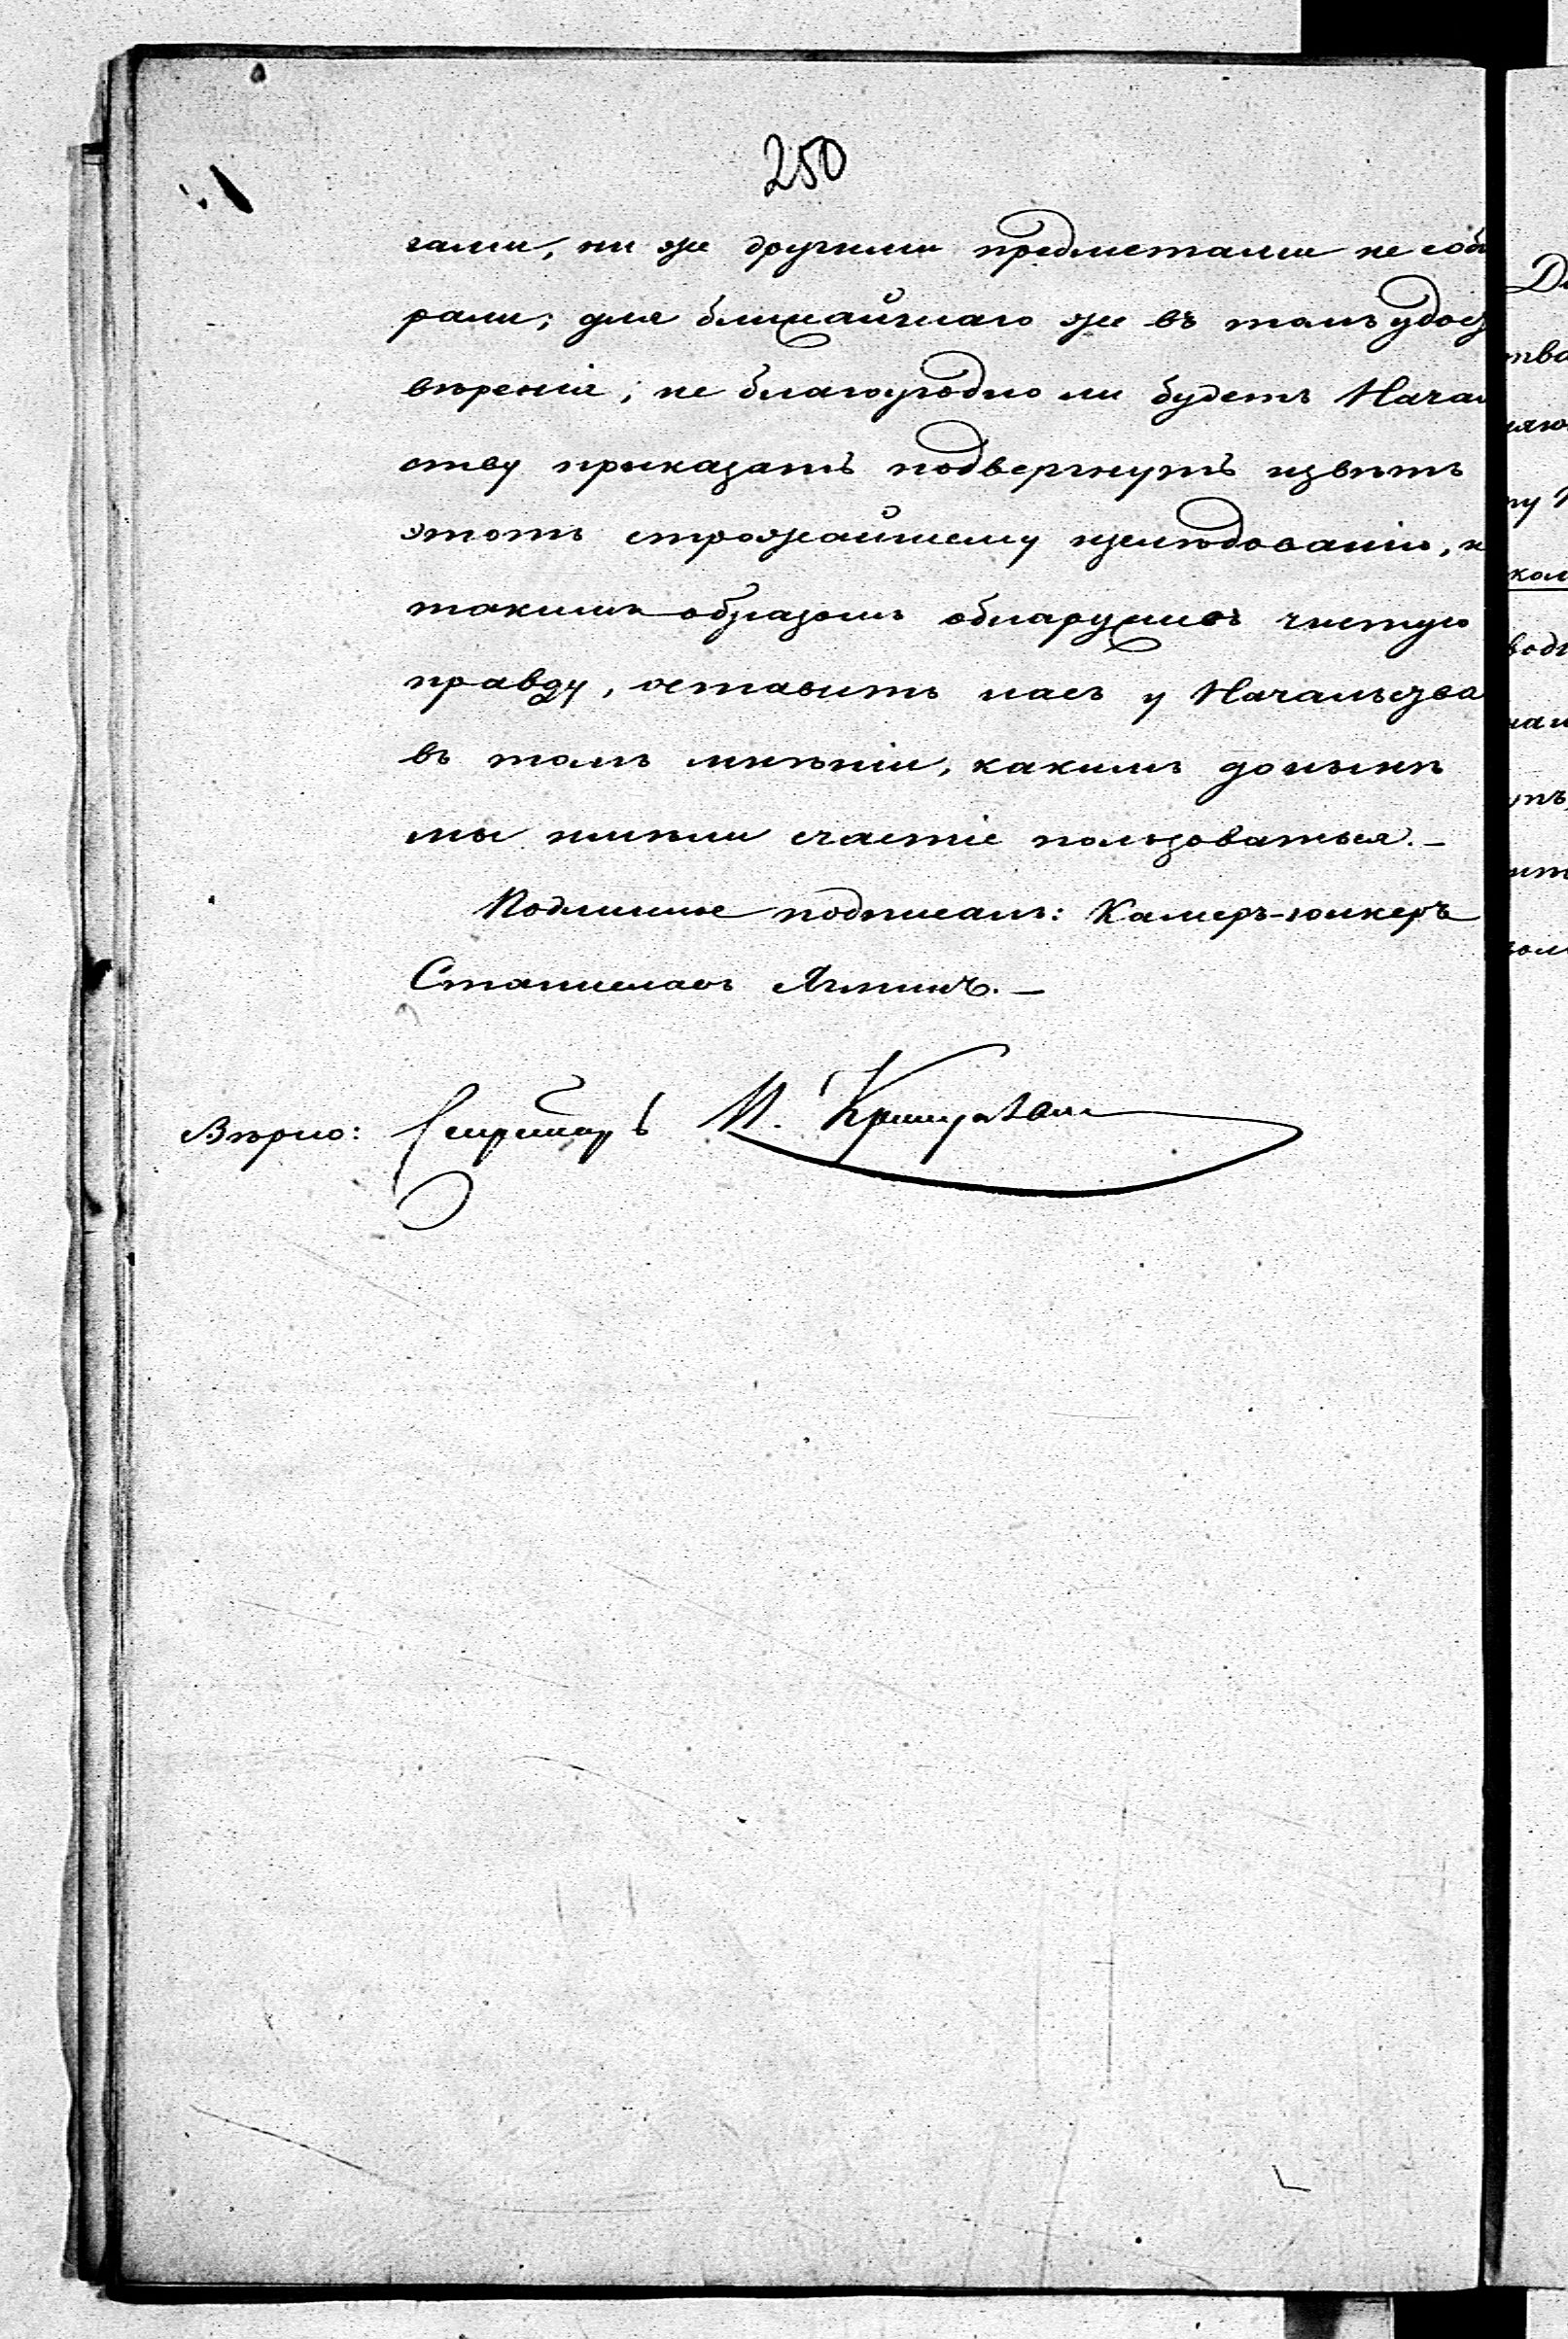 250
гами, ни же другими предметами не соби
рали; для ближайшаго же въ томъ удосто
вѣрения; не благоугодно ли будетъ Началь
ству приказать подвергнуть извѣтъ
этотъ строжайшему изслѣдованію, и
такимъ образомъ обнаруживъ чистую
правду, оставить насъ у Начальства
въ томъ мнѣніи, какимъ донынѣ
мы имѣли счастіе пользоваться. —
Подлинное подписалъ: Камеръ-юнкеръ
Станиславъ —
Вѣрно: Секретарь И.